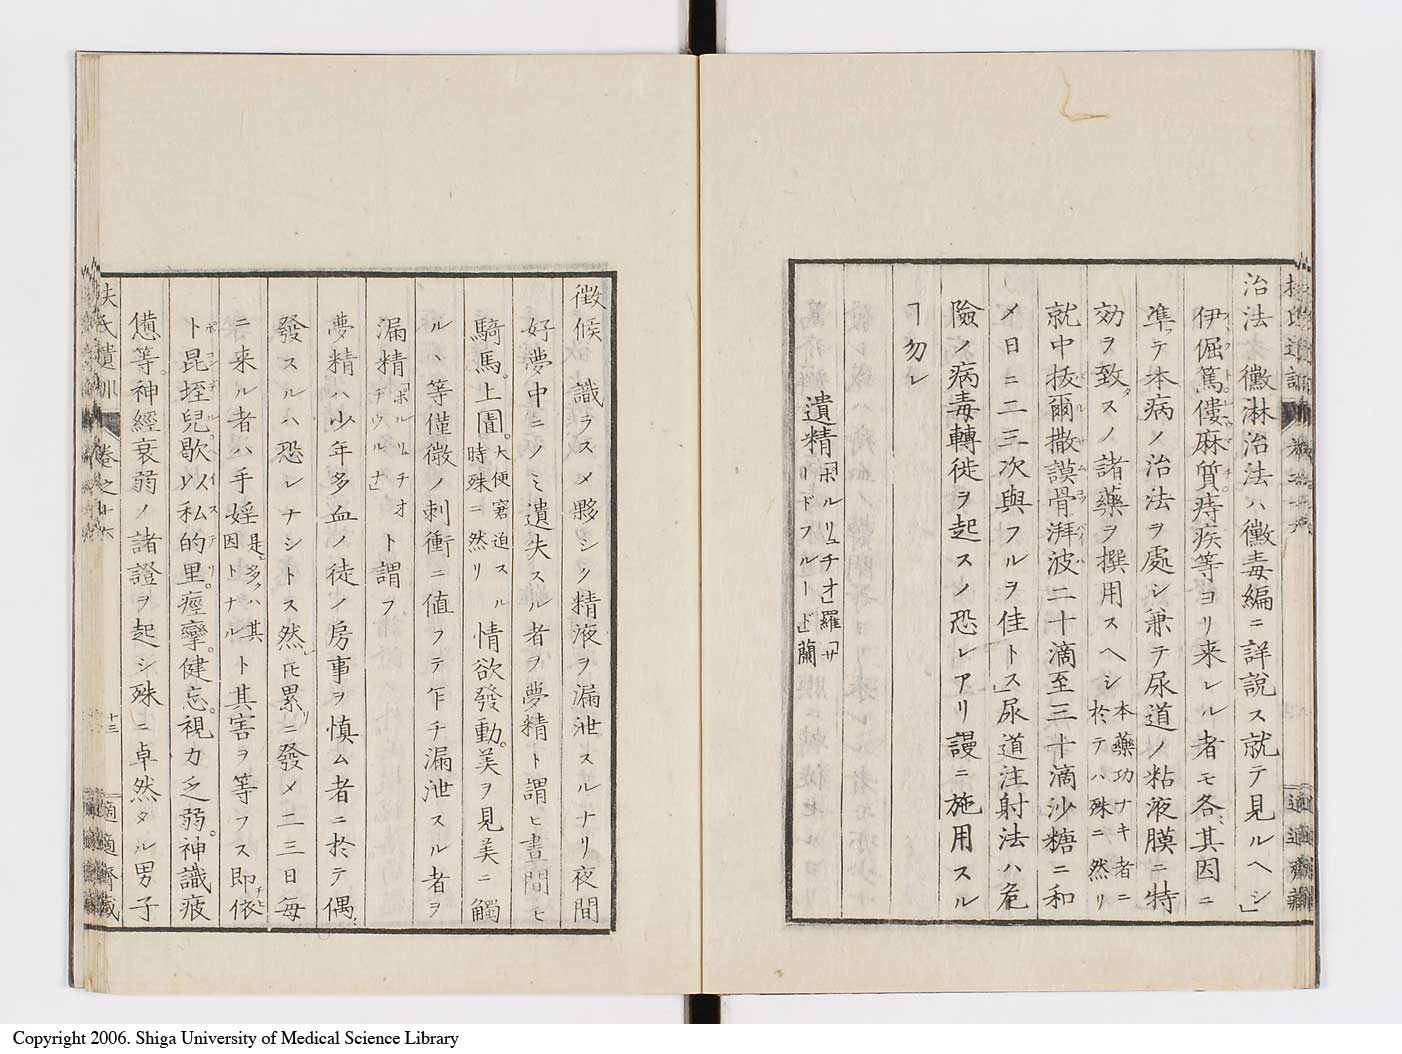 治法黴淋治法ハ黴毒編ニ詳説ス就テ見ルヘシ」
伊倔篤僂麻質。痔疾等ヨリ来レル者モ各〻其因ニ
準テ本病ノ治法ヲ處シ兼テ尿道ノ粘液膜ニ特
効ヲ致スノ諸藥ヲ撰用スヘシ本藥功ナキ者ニ於テハ殊ニ然リ
就中拔爾撒謨骨湃波二十滴至三十滴沙糖ニ和
メ日ニ二三次與フルヲ佳トス」尿道注射法ハ危
險ノ病毒轉徙ヲ起スノ恐レアリ謾ニ施用スル
ヿ勿レ
遺精「ポルリュチオ」羅「サードフルード」蘭
徴候 識ラスメ夥シク精液ヲ漏泄スルナリ夜間
好夢中ニノミ遺失スル者ヲ夢精ト謂ヒ晝間ヒ
騎馬。上圊。大便窘迫スル時殊ニ然リ情欲發動。美ヲ見美ニ觸
ルヽ等僅微ノ刺衝ニ値フテ乍チ漏泄スル者ヲ
漏精「ポルリュチオヂウルナ」ト謂フ
夢精ハ少年多血ノ徒ノ房事ヲ慎ム者ニ於テ偶〻
發スルハ恐レナシトス然レ𪜈累リニ發メ二三日毎
ニ来ル者ハ手婬是多クハ其因トナルト其害ヲ等フス即チ依
ト昆垤兒。歇以私的里。痙攣。健忘。視力乏弱。神識疲
憊等。神經衰弱ノ諸證ヲ起シ殊ニ卓然タル男子
扶氏遺訓 巻之十六
十三
適適齋藏
Copyright 2006. Shiga University of Medical Science Library